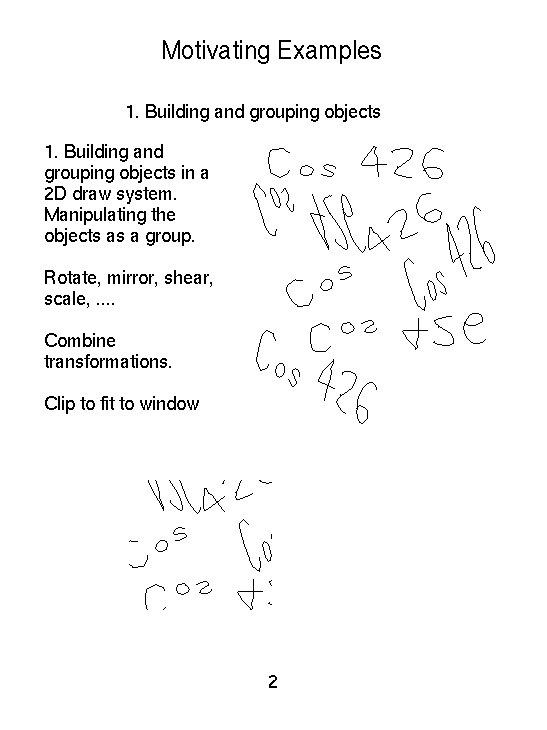 Motivating Examples
1. Building and grouping objects
1. Building and
grouping objects in a
2D draw system.
Manipulating the
objects as a group.
Rotate, mirror, shear,
scale, ....
Combine
transformations.
Clip to fit to window
Cos 426
426
Cos 426
Cos
Cos 426
Cos
2